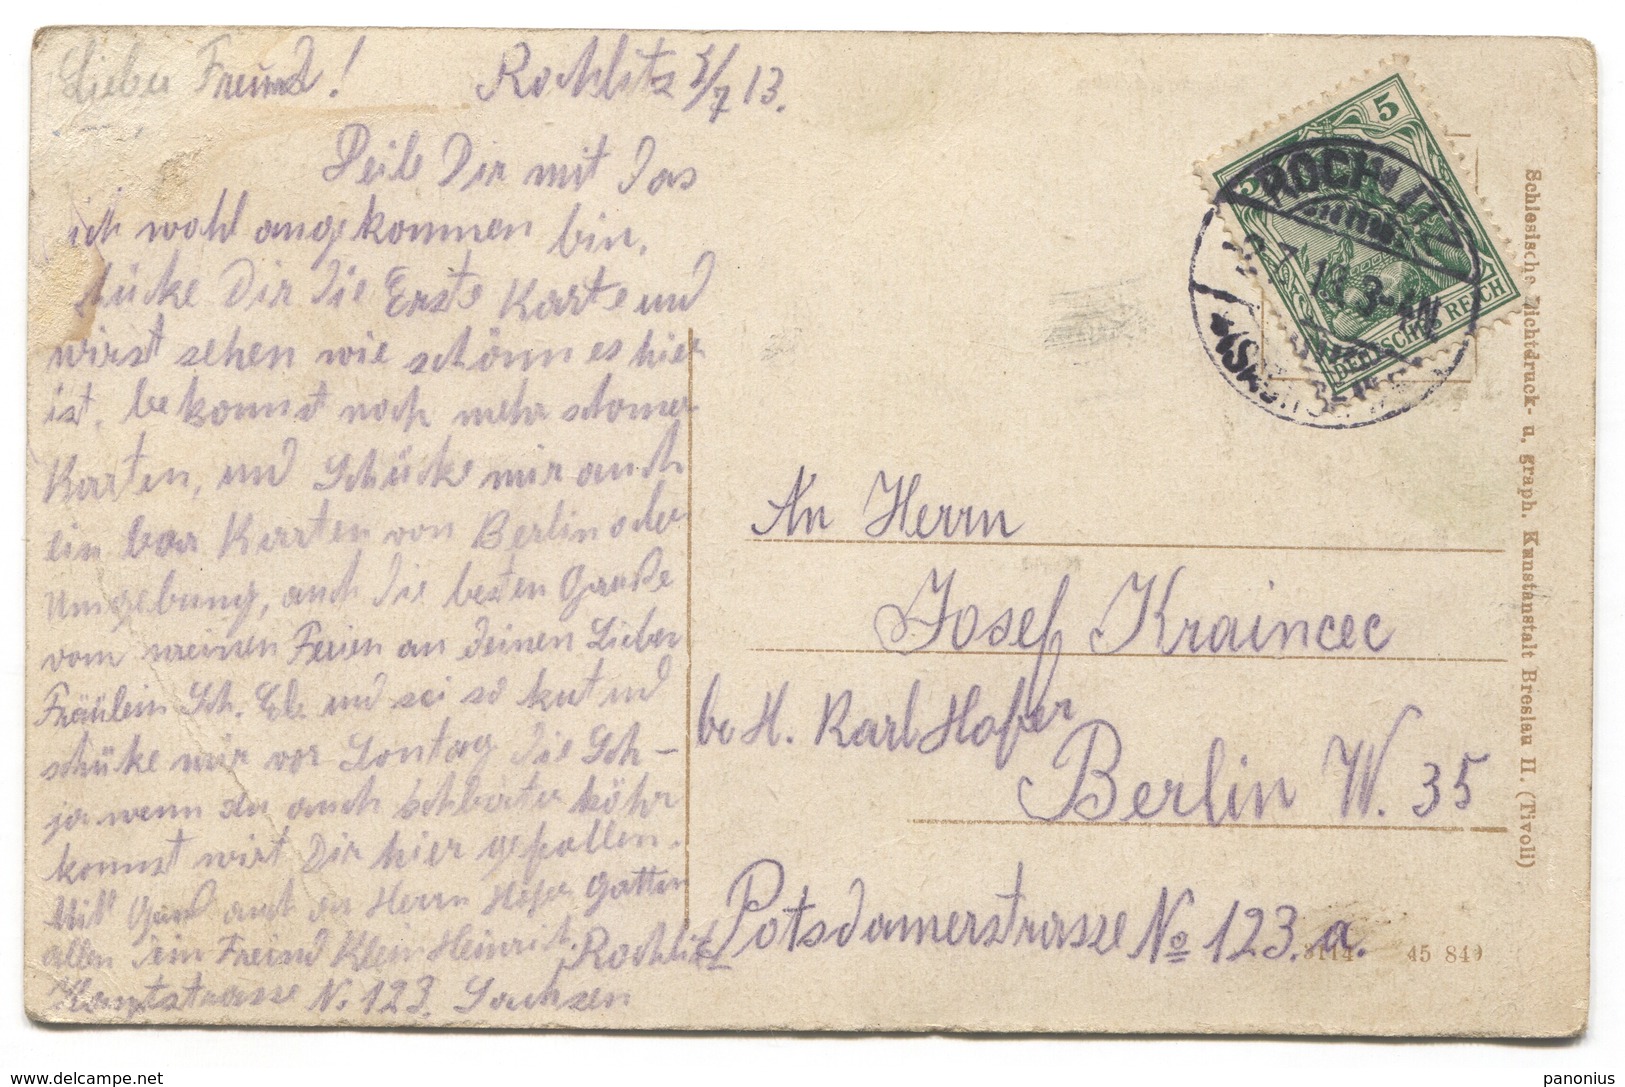 Lieber Freund!
Rochlitz 5/7 13.
Teile Dir mit das
ich wohl angekommen bin,
schücke Dir die Erste Karte und
wirst sehen wie schönn es hier
ist. bekomst noch mehr schoner
Karten, und schücke mir auch
ein bar Karten von Berlin oder
Umgebung, auch die besten Gruße
vom meinen Ferien an deinen Lieber
Fräulein Sch. und sei so kut und
schüke mir vor Sontag die Sch-
ja wenn du auch köhr
komst wirt Dir hier gefallen.
Mit Gruß auch an Herrn Hofer
allen dein Freind Klein Heinrich, Rochlitz
Hauptstrasse N. 123. Sachsen
ROCHLITZ
(SACHSEN)
7 13 3-4N
5
5
DEUTSCHES REICH
An Herrn
Josef Kraincec
be H. Karl Hofer
Berlin W. 35
Potsdamerstrasse No 123. a.
3114 45 849
Schlesische Lichtdruck- u. graph. Kunstanstalt Breslau II. (Tivoli)
www.delcampe.net
panonius